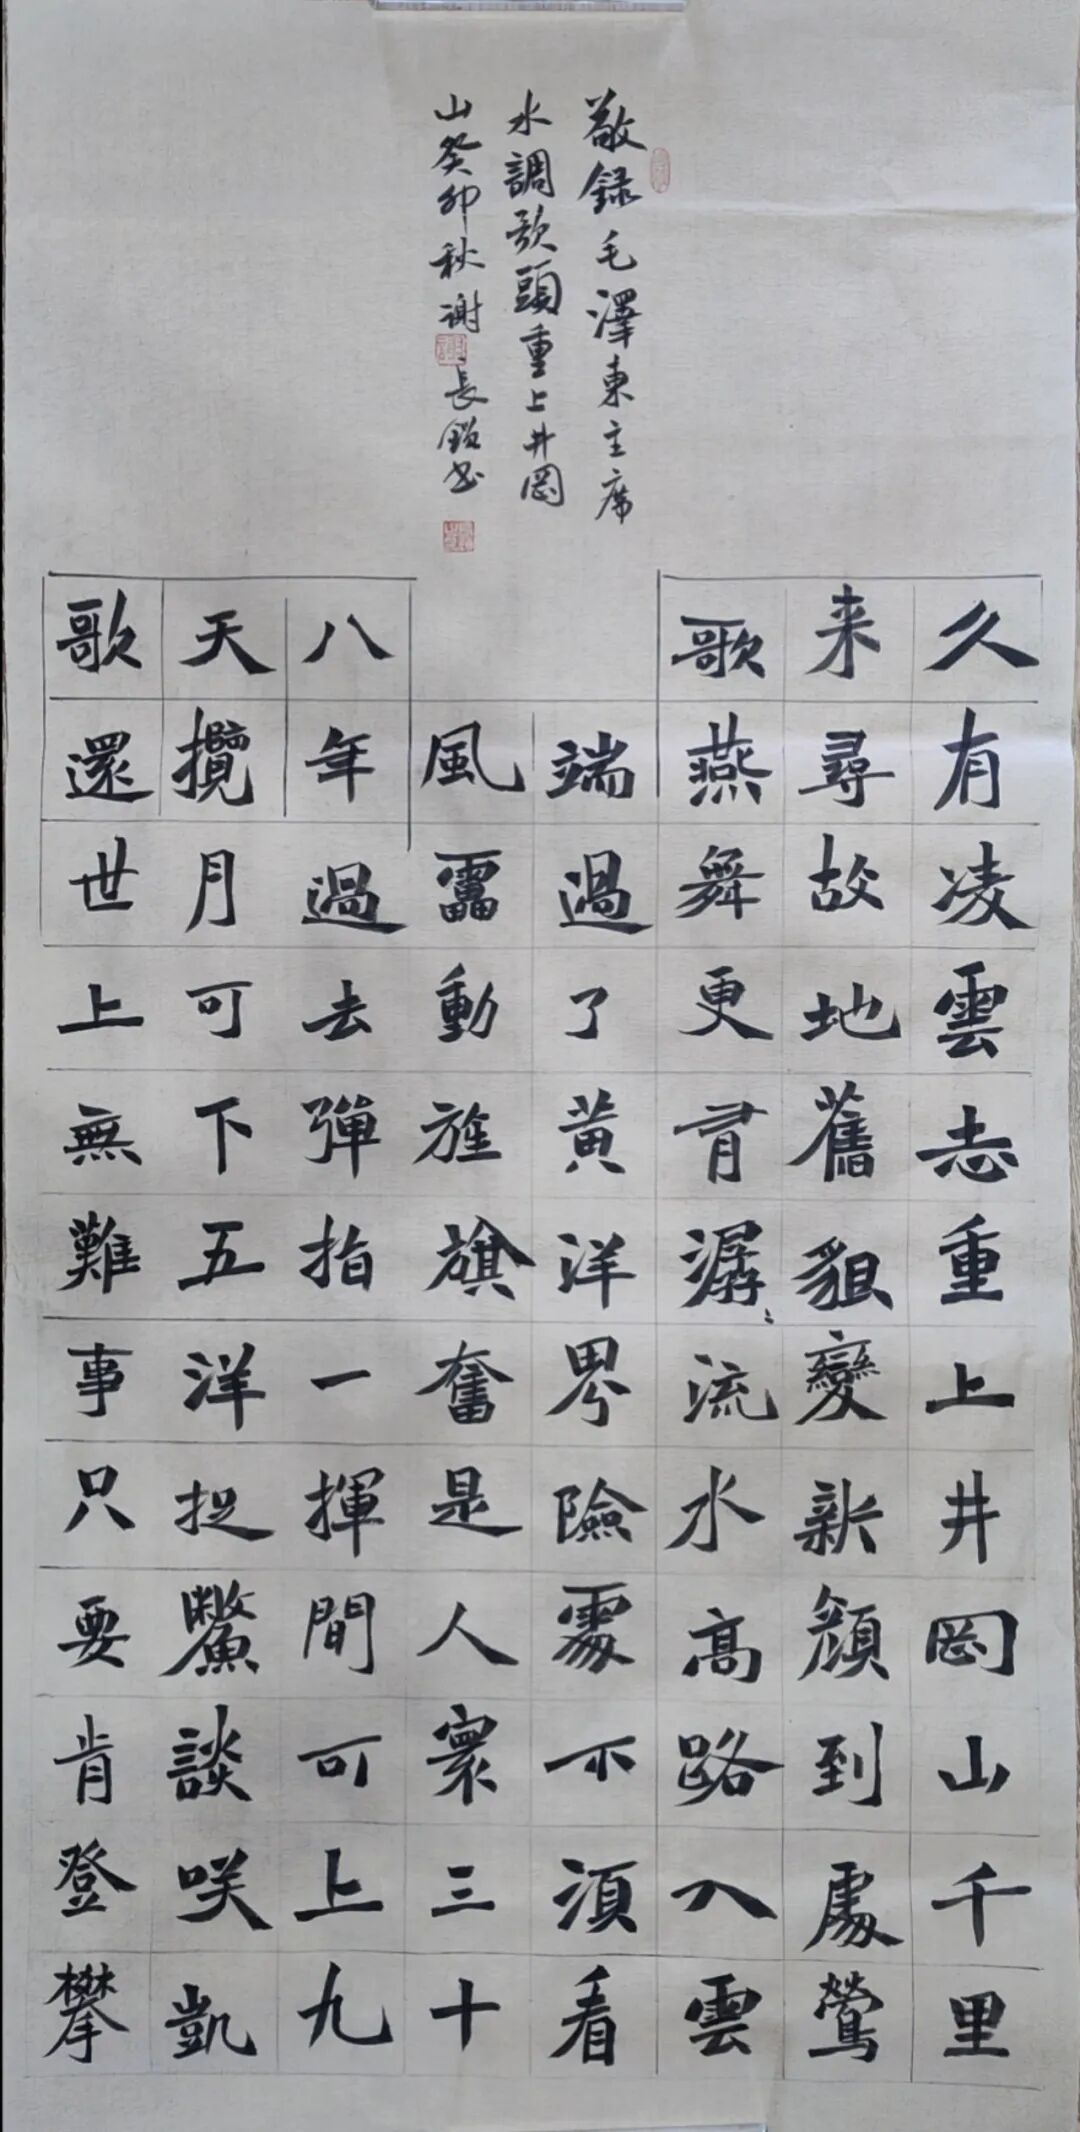 敬録毛澤東主席
水調歌頭重上井岡
山癸卯秋谢長鎖书
久有凌雲志重上井岡山千里
来尋故地舊貌變新顔到處鶯
歌燕舞更有潺〻流水高路入雲
端過了黄洋界險處不須看
風雷動旌旗奮是人寰三十
八年過去彈指一揮間可上九
天攬月可下五洋捉鱉談笑凱
歌還世上無難事只要肯登攀